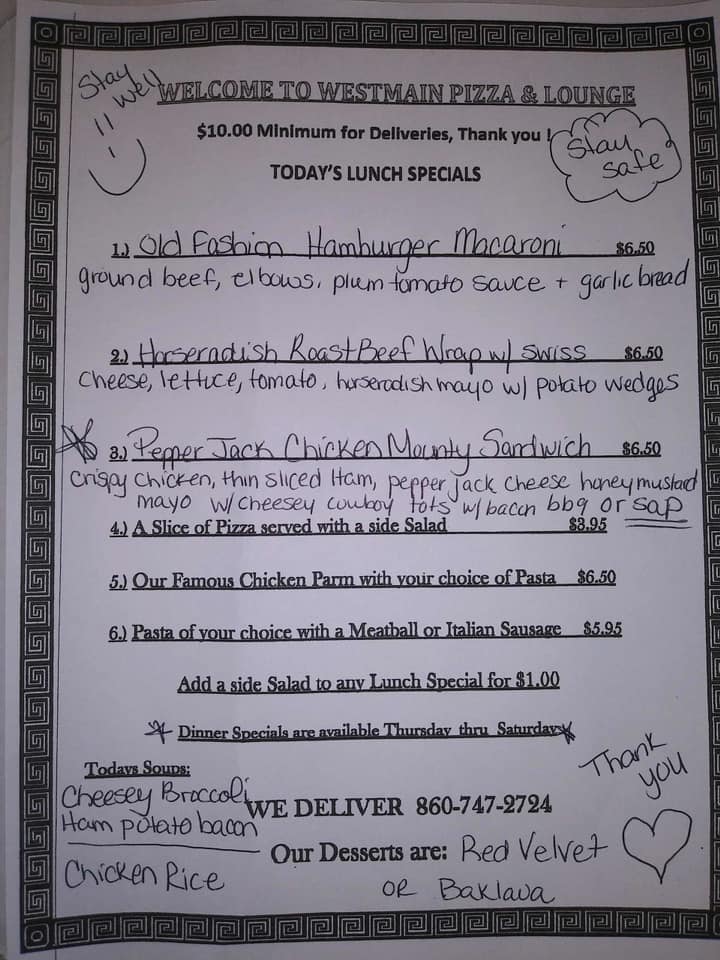 Stay well
WELCOME TO WESTMAIN PIZZA & LOUNGE
$10.00 Minimum for Deliveries, Thank you !
Stay safe
TODAY'S LUNCH SPECIALS
1.) Old Fashion Hamburger Macaroni $6.50
ground beef, elbows, plum tomato sauce + garlic bread
2.) Horseradish Roast Beef Wrap w/ swiss $6.50
Cheese, lettuce, tomato, horseradish mayo w/ potato wedges
3.) Pepper Jack Chicken Mounty Sandwich $6.50
Crispy chicken, thin sliced Ham, pepper jack cheese honey mustard
mayo w/ cheesey cowboy tots w/ bacon bbq or sap
4.) A Slice of Pizza served with a side Salad $3.95
5.) Our Famous Chicken Parm with your choice of Pasta $6.50
6.) Pasta of your choice with a Meatball or Italian Sausage $5.95
Add a side Salad to any Lunch Special for $1.00
Dinner Specials are available Thursday thru Saturday
Thank you
Todays Soups:
Cheesey Broccoli
Ham potato bacon
Chicken Rice
WE DELIVER 860-747-2724
Our Desserts are: Red Velvet
OR Baklava